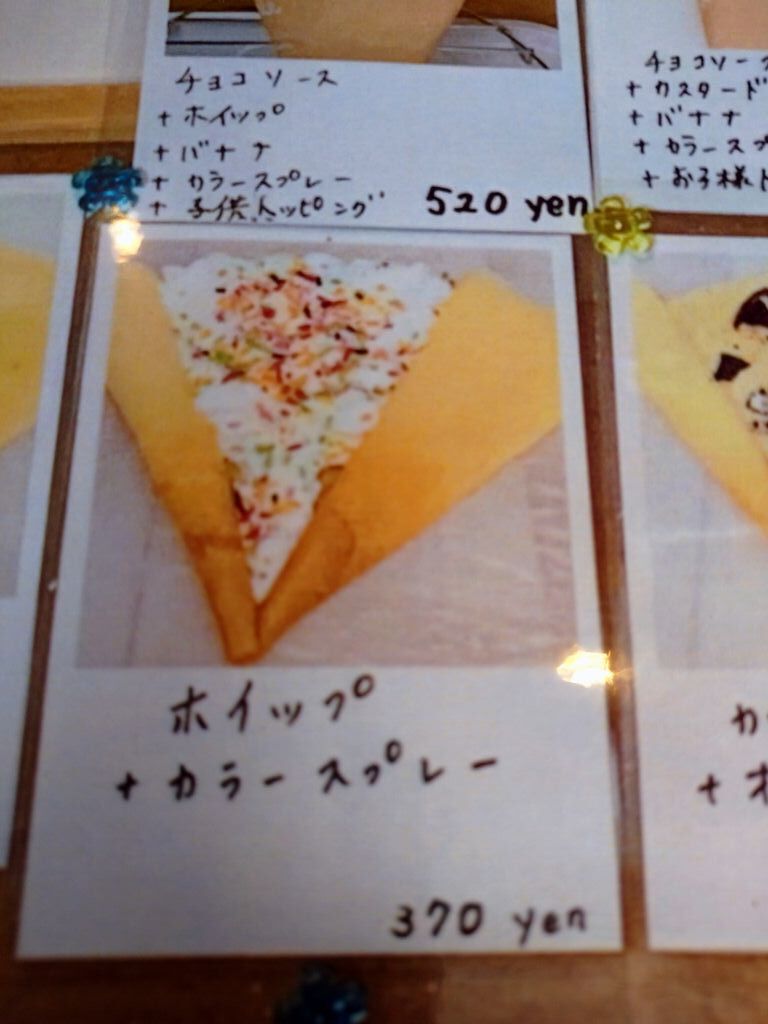 チョコソース
+ ホイップ
+ バナナ
+ カラースプレー
+ 子供トッピング
520 yen
チョコソー
+ カスタード
+ バナナ
+ カラースプ
+ お子様ト
ホイップ
+ カラースプレー
370 yen
カ
+ オ